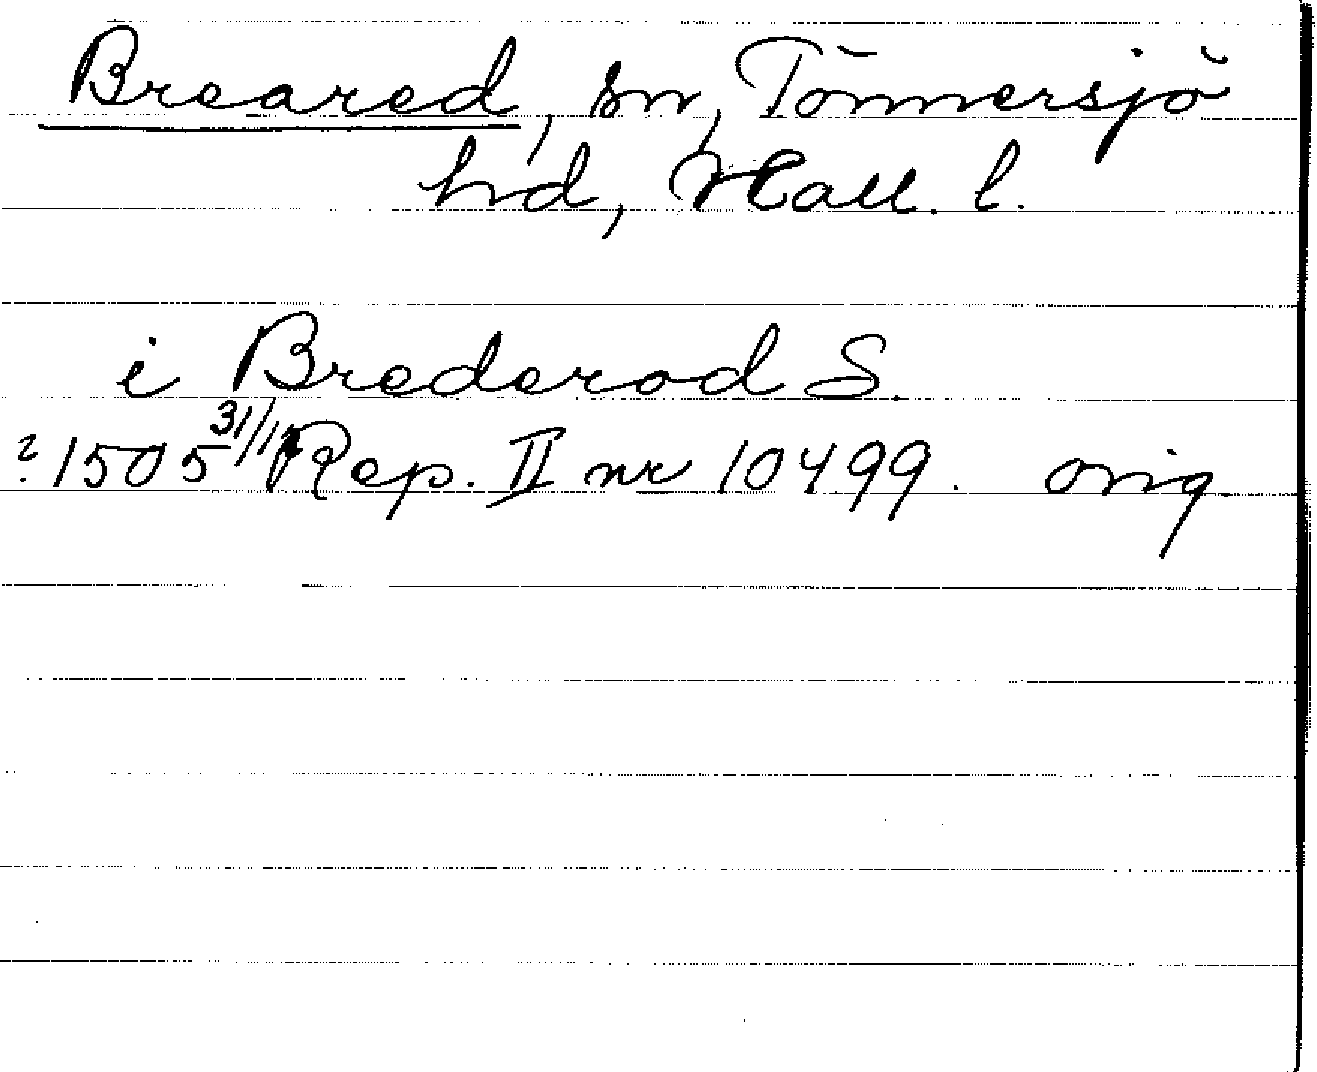 Breared, sn, Tönnersjö
hd, Hall. l.
i Brederod S.
? 1505 31/12 Rep. II nr 10499. orig